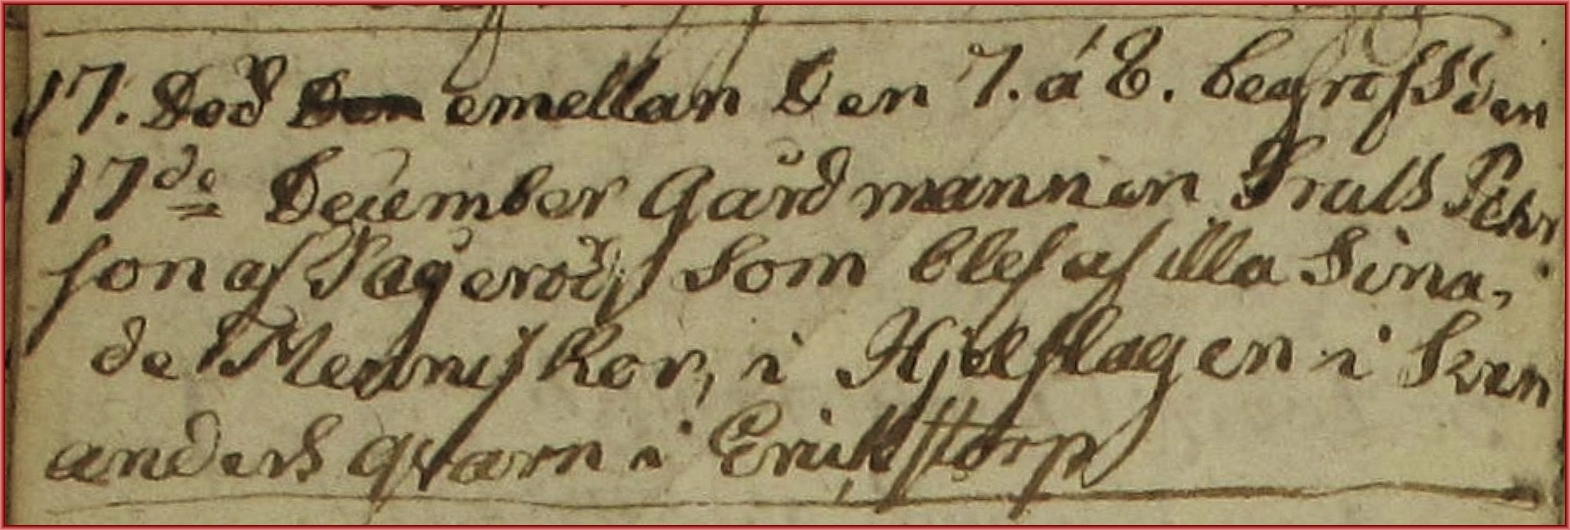 17. Död Den emellan Den 7. á 8. begrofs Den
17de December Gårdmannen Truls Pehr
son af Pageröd, som blef af illa Sina,
de Menniskor, i Hjelslagen i Sven
anders qvarn i Erikstorp